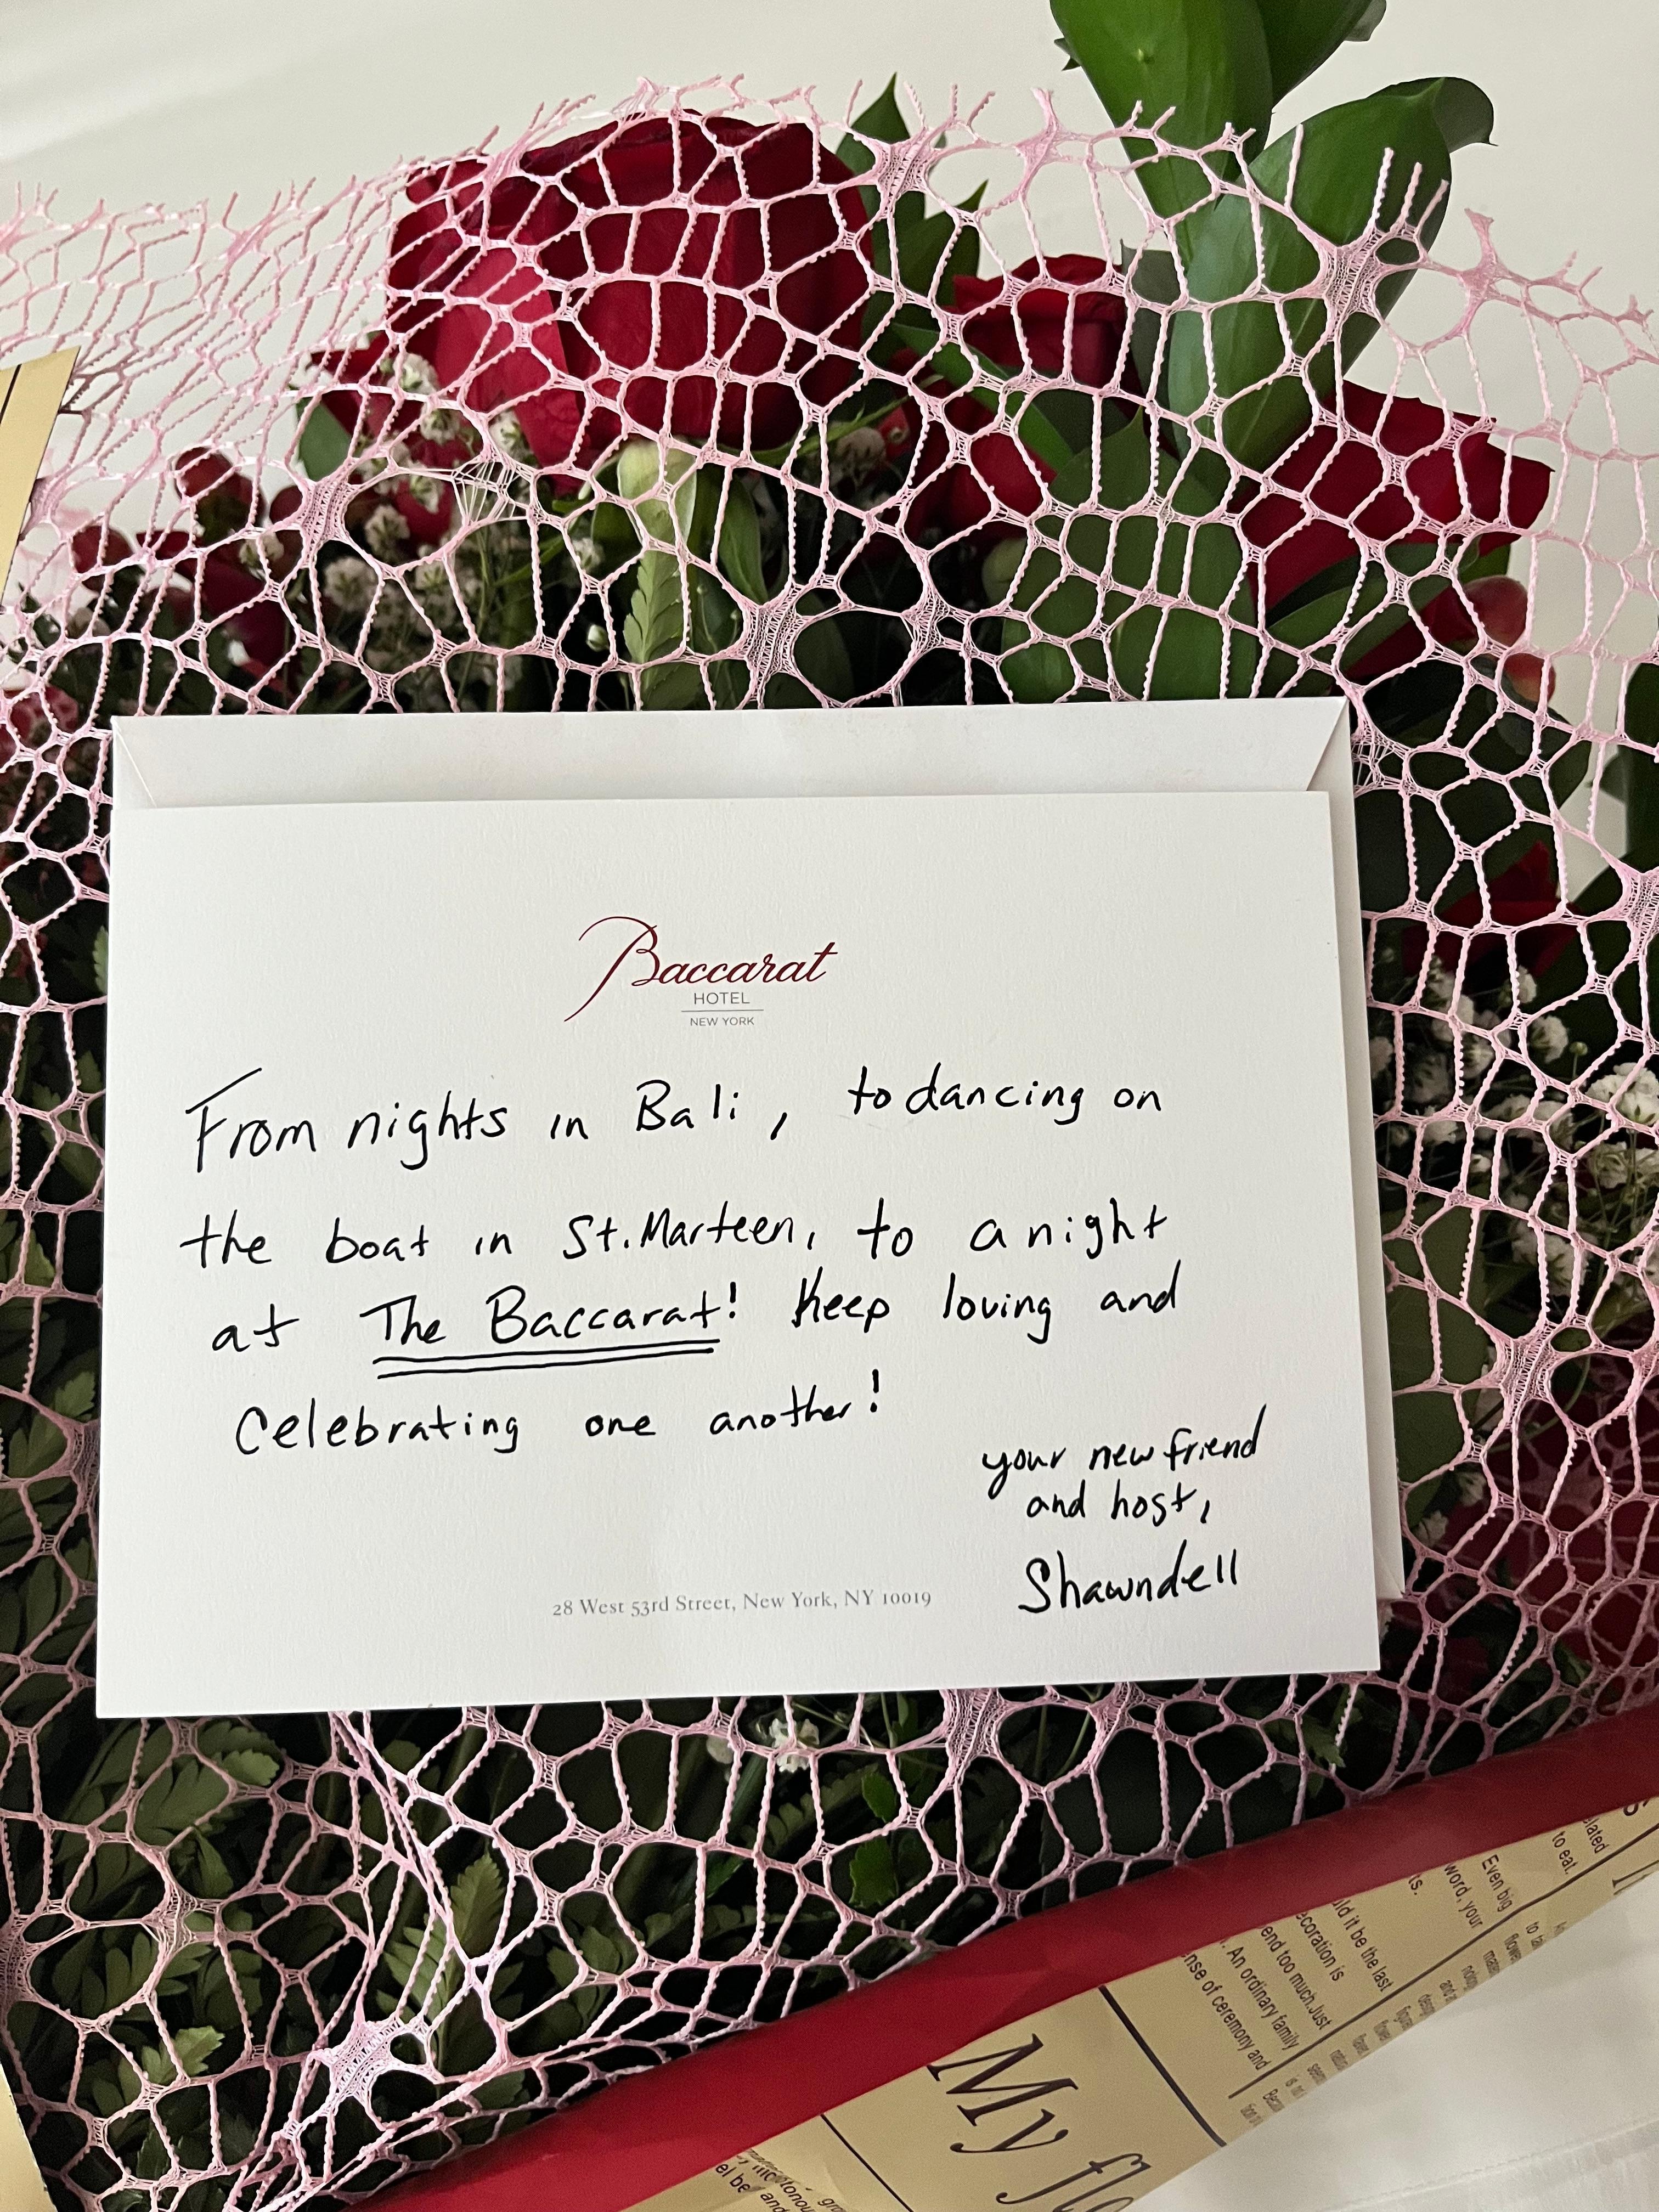 Baccarat
HOTEL
NEW YORK
From nights in Bali, to dancing on
the boat in St. Marteen, to a night
at The Baccarat! Keep loving and
Celebrating one another!
your new friend
and host,
Shawndell
28 West 53rd Street, New York, NY 10019
to eat.
Even big
word, your
it be the last
end too much.Just
An ordinary family
of ceremony and
My